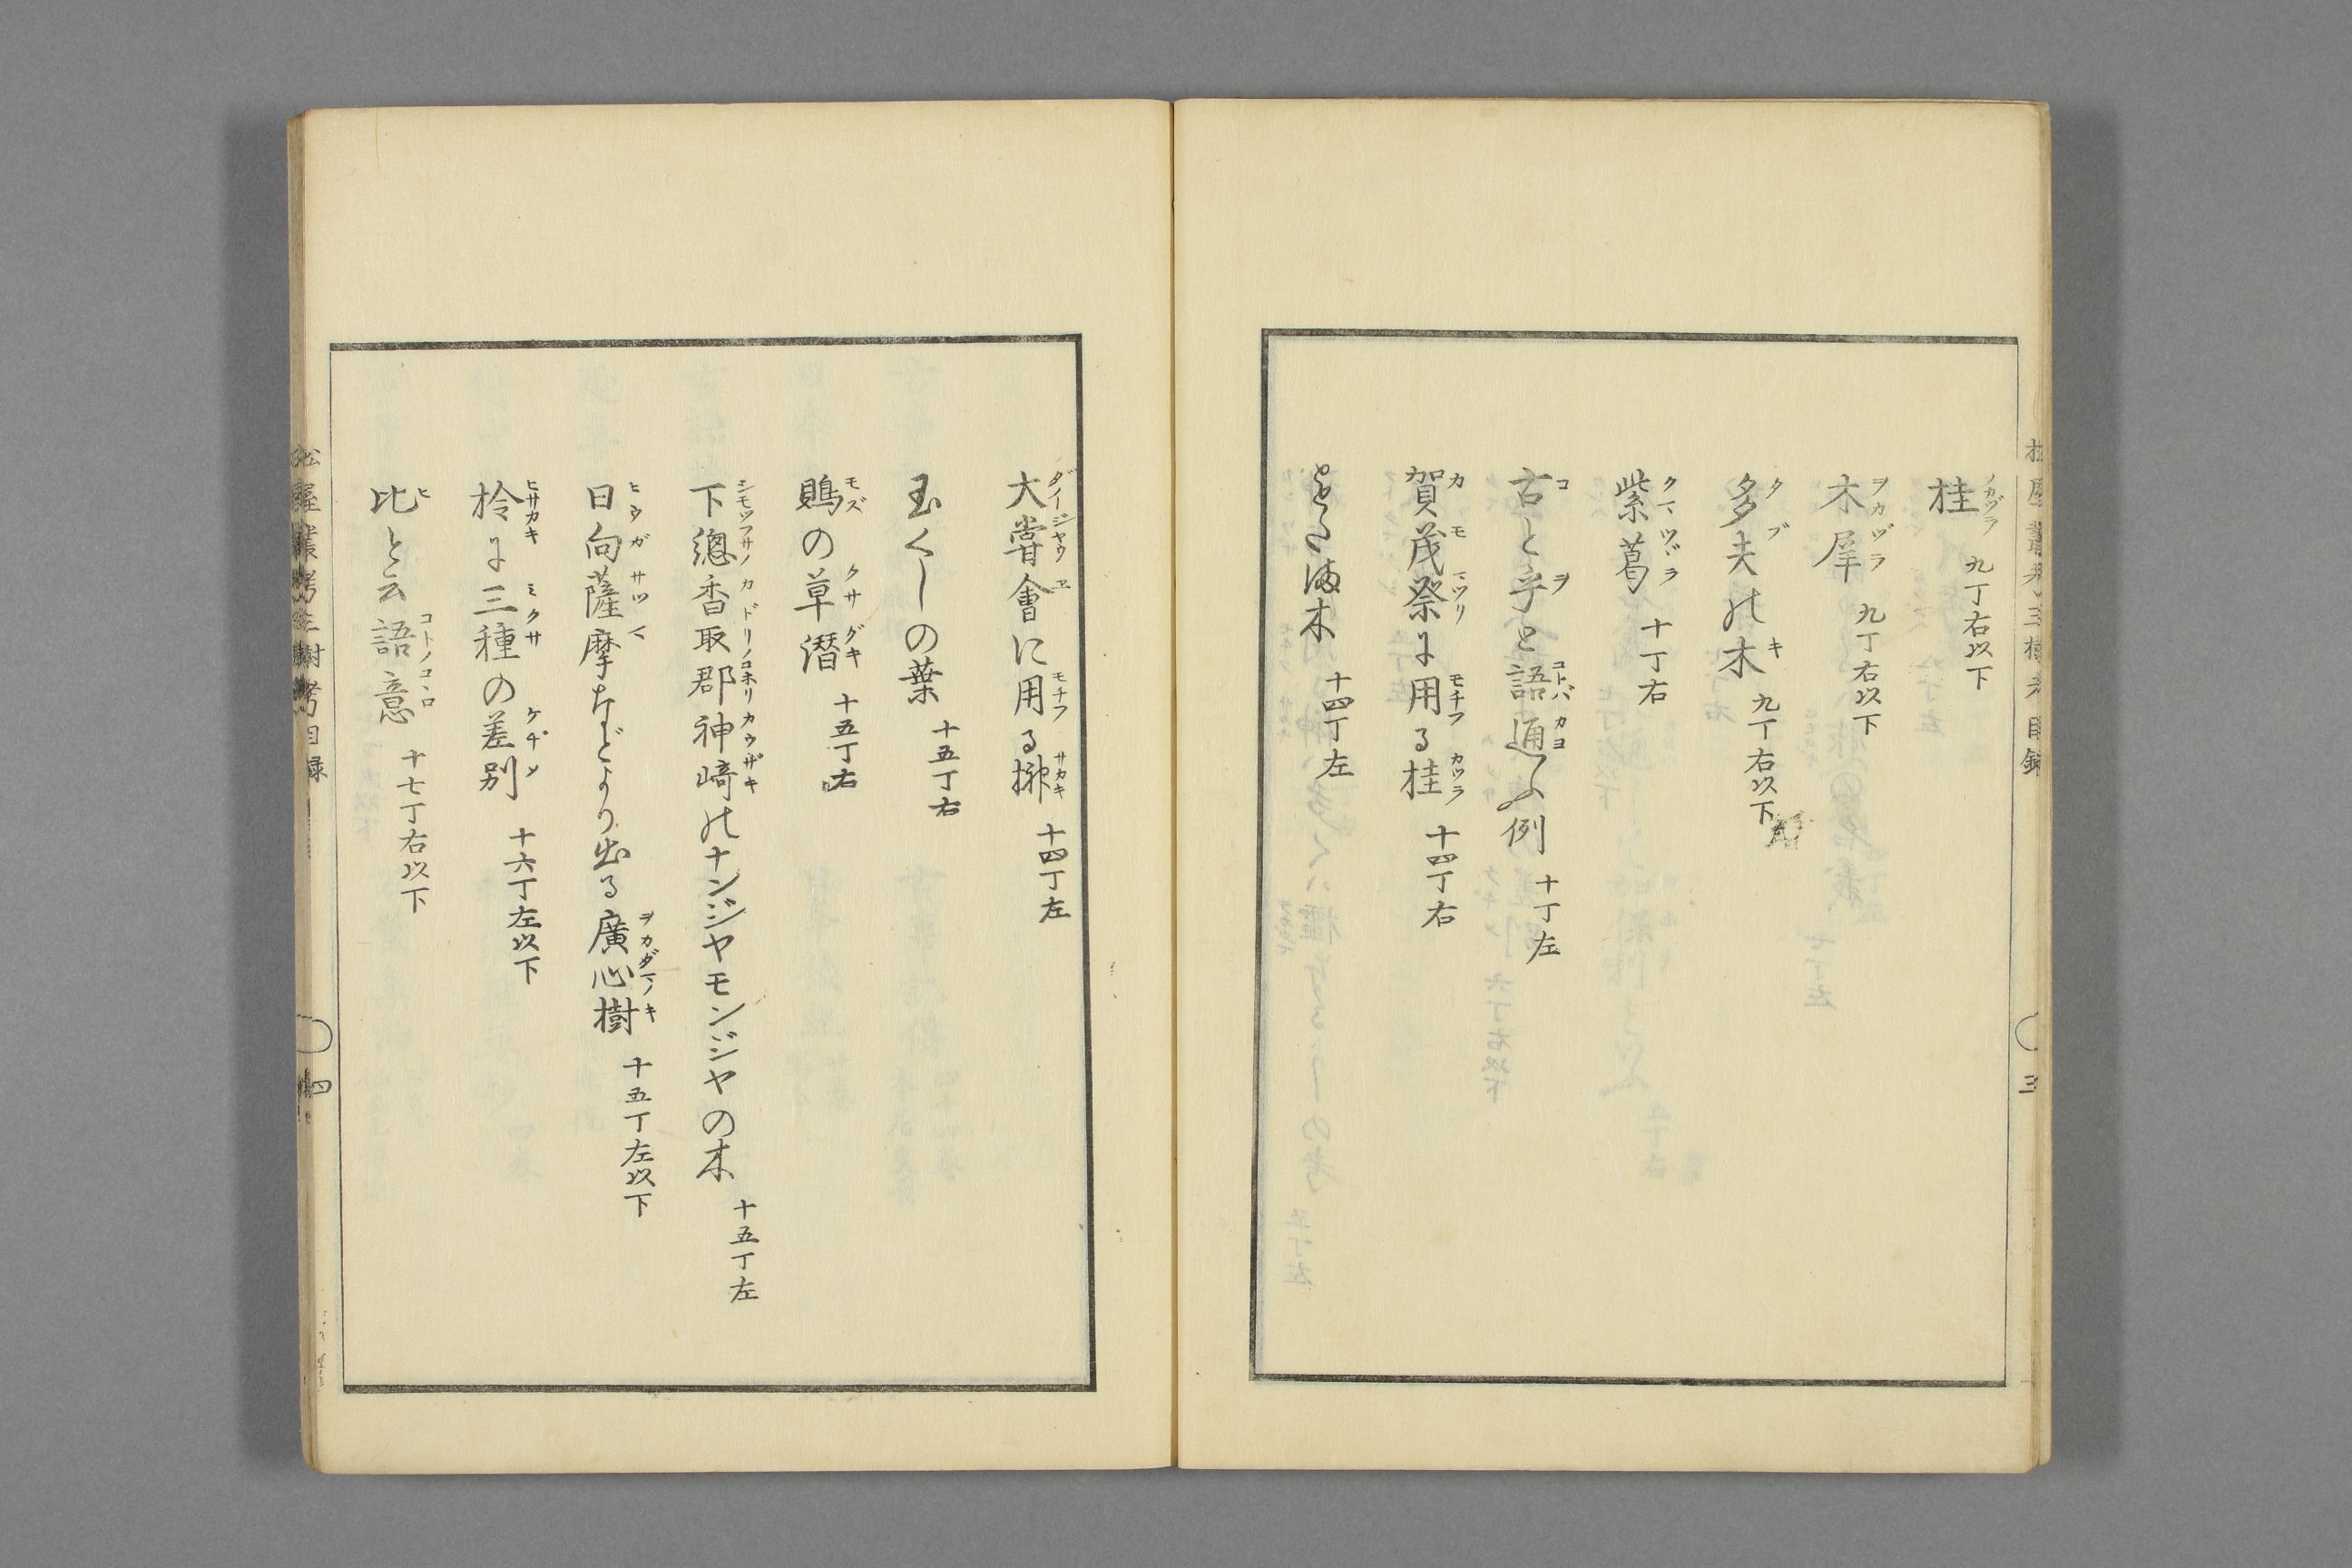 桂 九丁右以下
木犀 九丁右以下
多夫の木 九丁右以下
紫葛 十丁右
古と乎と語通ふ例 十丁左
賀茂祭に用る桂 十四丁右
をたま木 十四丁左
大嘗會に用る榊 十四丁左
玉くしの葉 十五丁右
鵙の草潜 十五丁右
下總香取郡神﨑のナンジヤモンジヤの木 十五丁左
日向薩摩などより出る廣心樹 十五丁左以下
柃に三種の差別 十六丁左以下
比と云語意 十七丁右以下
四